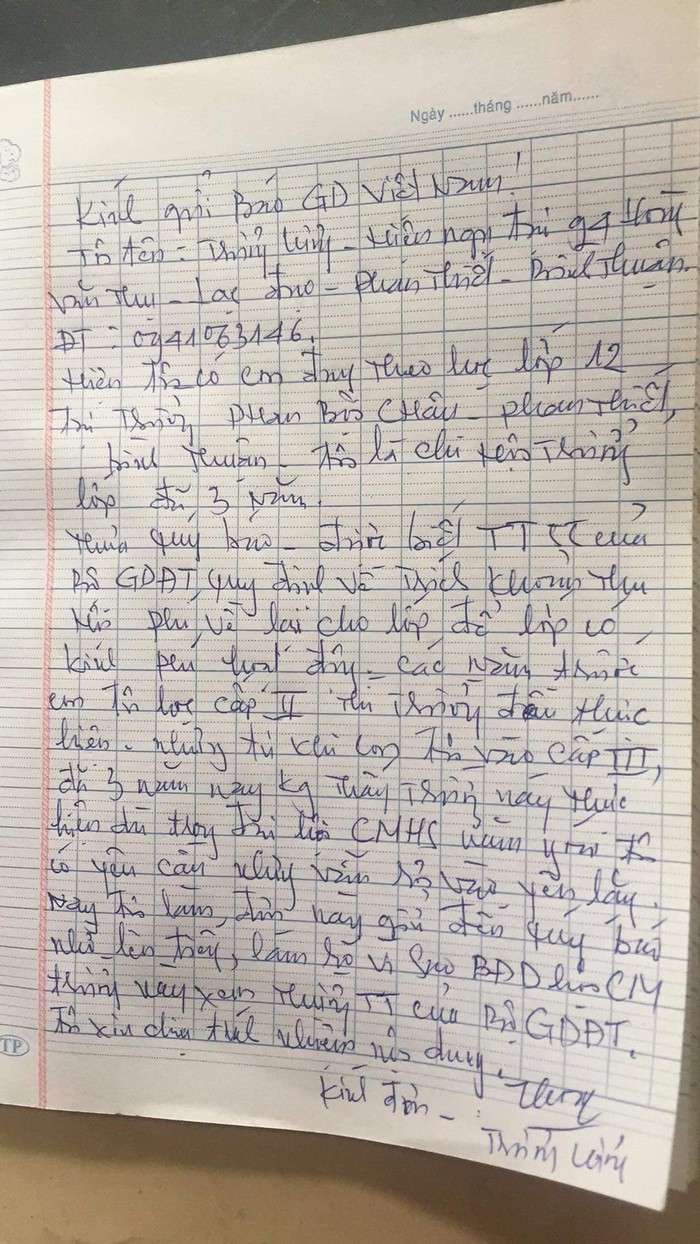 Ngày ......tháng ......năm......
Kính gửi Báo GD Việt Nam!
Tôi tên: - Hiện ngụ tại 94
Văn Thụ - Lạc đạo - Phan Thiết - Bình Thuận
ĐT: 0941063146.
Hiện Tôi có em đang theo học lớp 12
Tại Trường Phan Bội Châu - Phan Thiết,
bình Thuận - Tôi là chi Trưởng
lớp đã 3 năm.
Thưa quý báo - được biết TT của
Bộ GDĐT, quy định về Trích khoản thu
hội phí, về lại cho lớp, để lớp có
kinh phí hoạt động - các năm trước
em Tôi học cấp II Thì Trường đều thực
hiện - nhưng từ khi con Tôi vào cấp III,
đã 3 năm nay kg Thấy Trường này thực
hiện dù trong đại hội CMHS năm Tôi
có yêu cầu nhưng vẫn rơi vào yên lặng.
Nay Tôi làm đơn này gửi đến quý báo
nhờ lên tiếng, làm rõ vì sao BĐD hội CM
trường này xem Thường TT của Bộ GDĐT.
Tôi xin chịu trách nhiệm nội dung.
Kính đơn -
TP